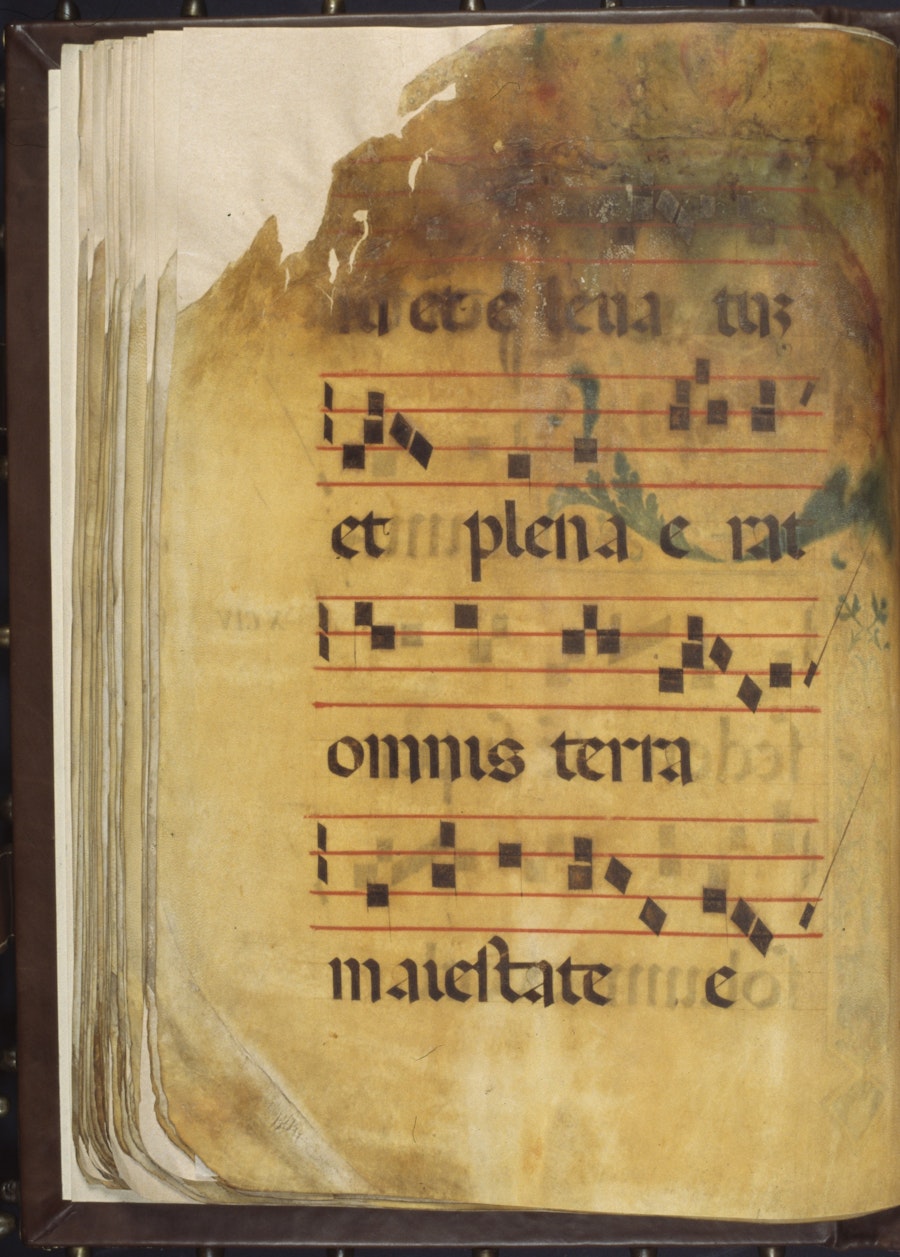 et e leua tuʒ
et plena e rat
omnis terra
maiestate e